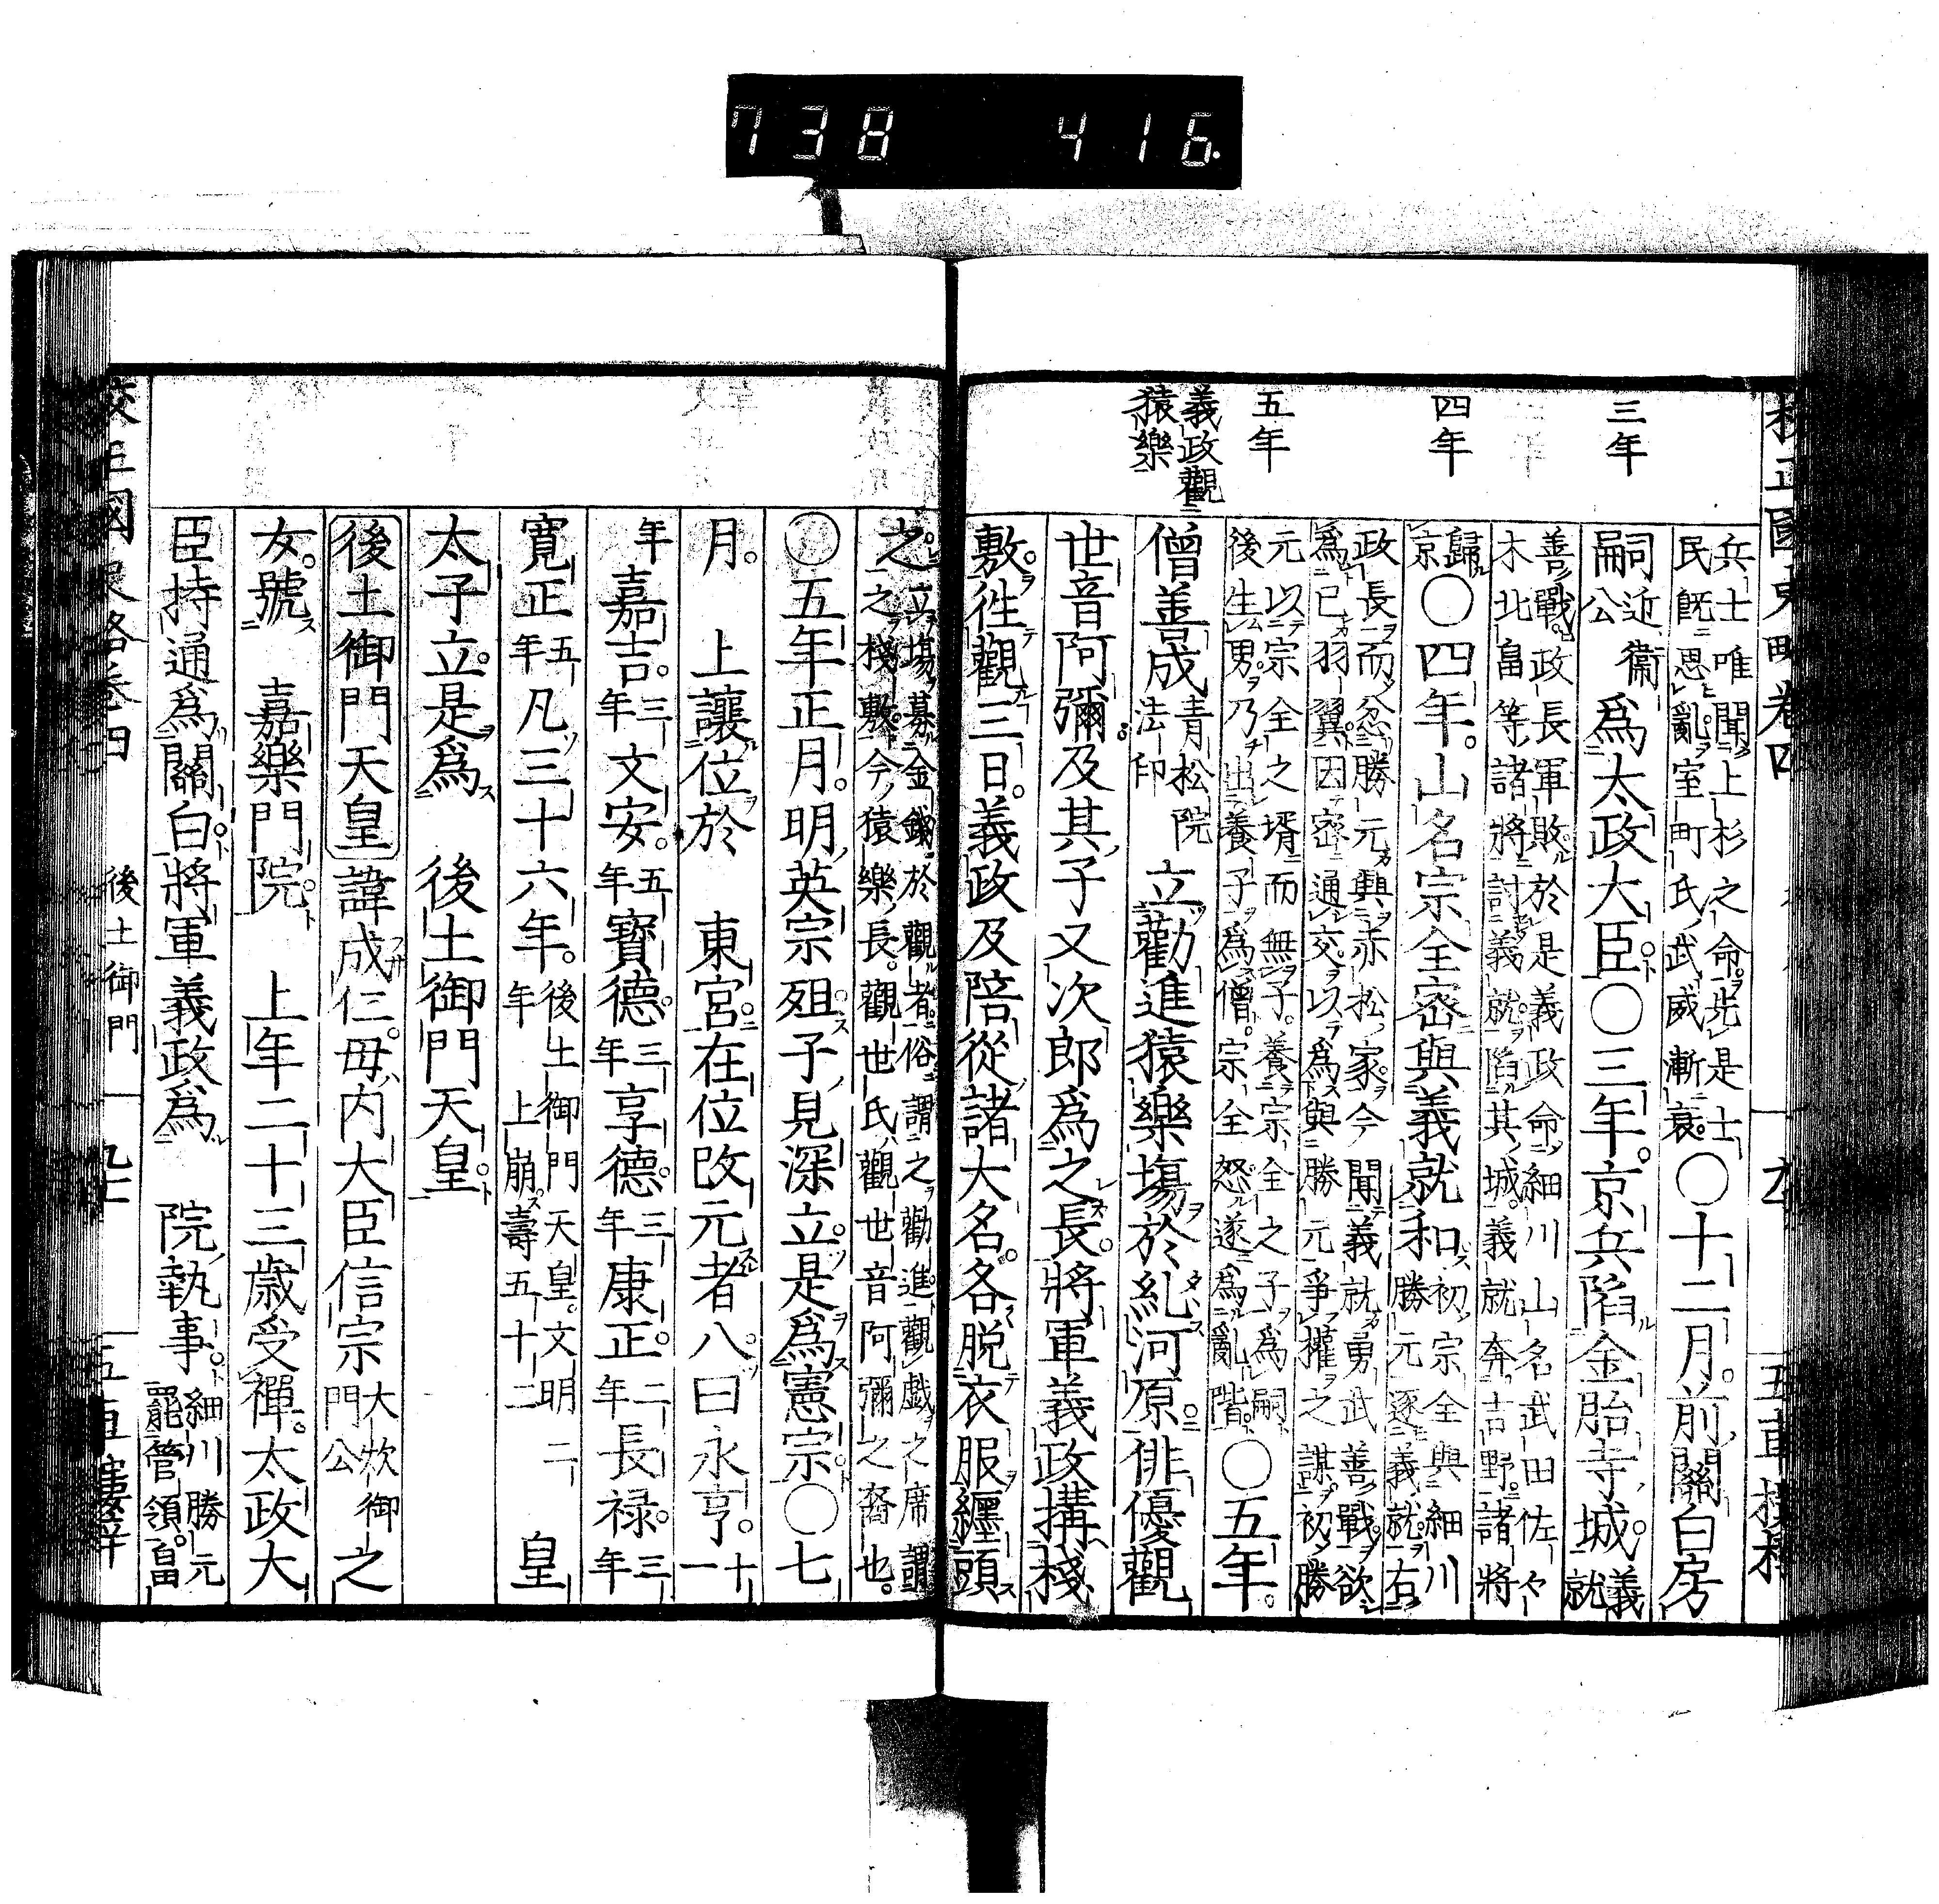 738 416
三年
四年
五年
義政觀
猿樂
兵士唯聞上杉之命先是士
民既思亂室町氏武威漸衰
〇十二月前關白房
嗣
近衞
公
爲太政大臣〇三年京兵陷金胎寺城
義
就
善戰政長軍敗於是義政命細川山名武田佐々
木北畠等諸將討義就陷其城義就奔吉野諸將
歸
京
〇四年山名宗全密與義就和
初宗全與細川
勝元逐義就右
政長而忿勝元興赤松家今聞義就勇武善戰欲
爲己羽翼因密通交以爲與勝元爭權之謀初勝
元以宗全之壻而無子養宗全之子爲嗣
後生男乃出養子爲僧宗全怒遂爲亂階
〇五年
僧善成
青松院
法印
立勸進猿樂塲於糺河原俳優觀
世音阿彌及其子又次郎爲之長將軍義政搆棧
敷徃觀三日義政及陪從諸大名各脱衣服纒頭
之
立塲募金錢於觀者俗謂之勸進觀戯之席謂
之棧敷今猿樂長觀世氏觀世音阿彌之裔也
〇五年正月明英宗殂子見深立是爲憲宗〇七
月 上讓位於 東宮在位改元者八曰永享
十一
年
嘉吉
三年
文安
五年
寶德
三年
享德
三年
康正
二年
長禄
三年
寛正
五年
凡三十六年
後土御門天皇文明二
年 上崩壽五十二
皇
太子立是爲 後土御門天皇
後土御門天皇 諱成仁母内大臣信宗
大炊御
門公
之
女號 嘉樂門院 上年二十三歳受禪太政大
臣持通爲關白將軍義政爲 院執事
細川勝元
罷管領畠
後土御門